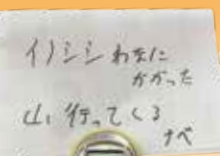 イノシシ わなに
かかった
山、行ってくる
ナベ